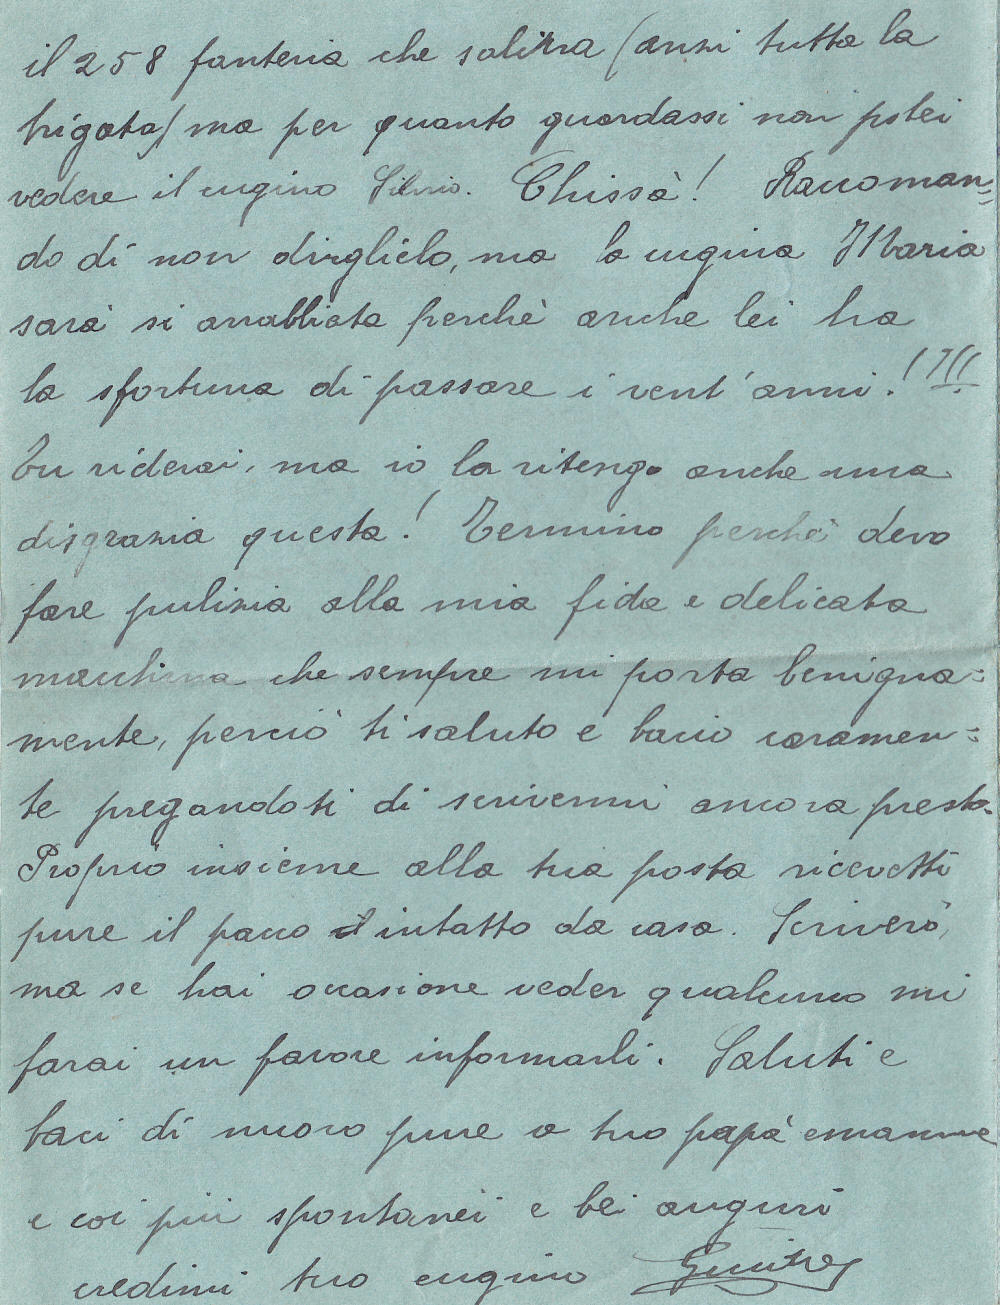 il 258 fanteria che saliva (anzi tutta la
brigata) ma per quanto guardassi non potei
vedere il cugino Silvio. Chissà! Raccoman=
do di non dirglielo, ma la cugina Maria
sarà si arrabbiata perchè anche lei ha
la sfortuna di passare i vent'anni!
Tu riderai, ma io la ritengo anche una
disgrazia questa! Termino perchè devo
fare pulizia alla mia fida e delicata
macchina che sempre mi porta benigna=
mente, perciò ti saluto e bacio caramen=
te pregandoti di scrivermi ancora presto.
Proprio insieme alla tua posta ricevetti
pure il pacco intatto da casa. Scriverò,
ma se hai occasione veder qualcuno mi
farai un favore informarli. Saluti e
baci di nuovo pure a tuo papà e mamma
e coi più spontanei e bei auguri
credimi tuo cugino